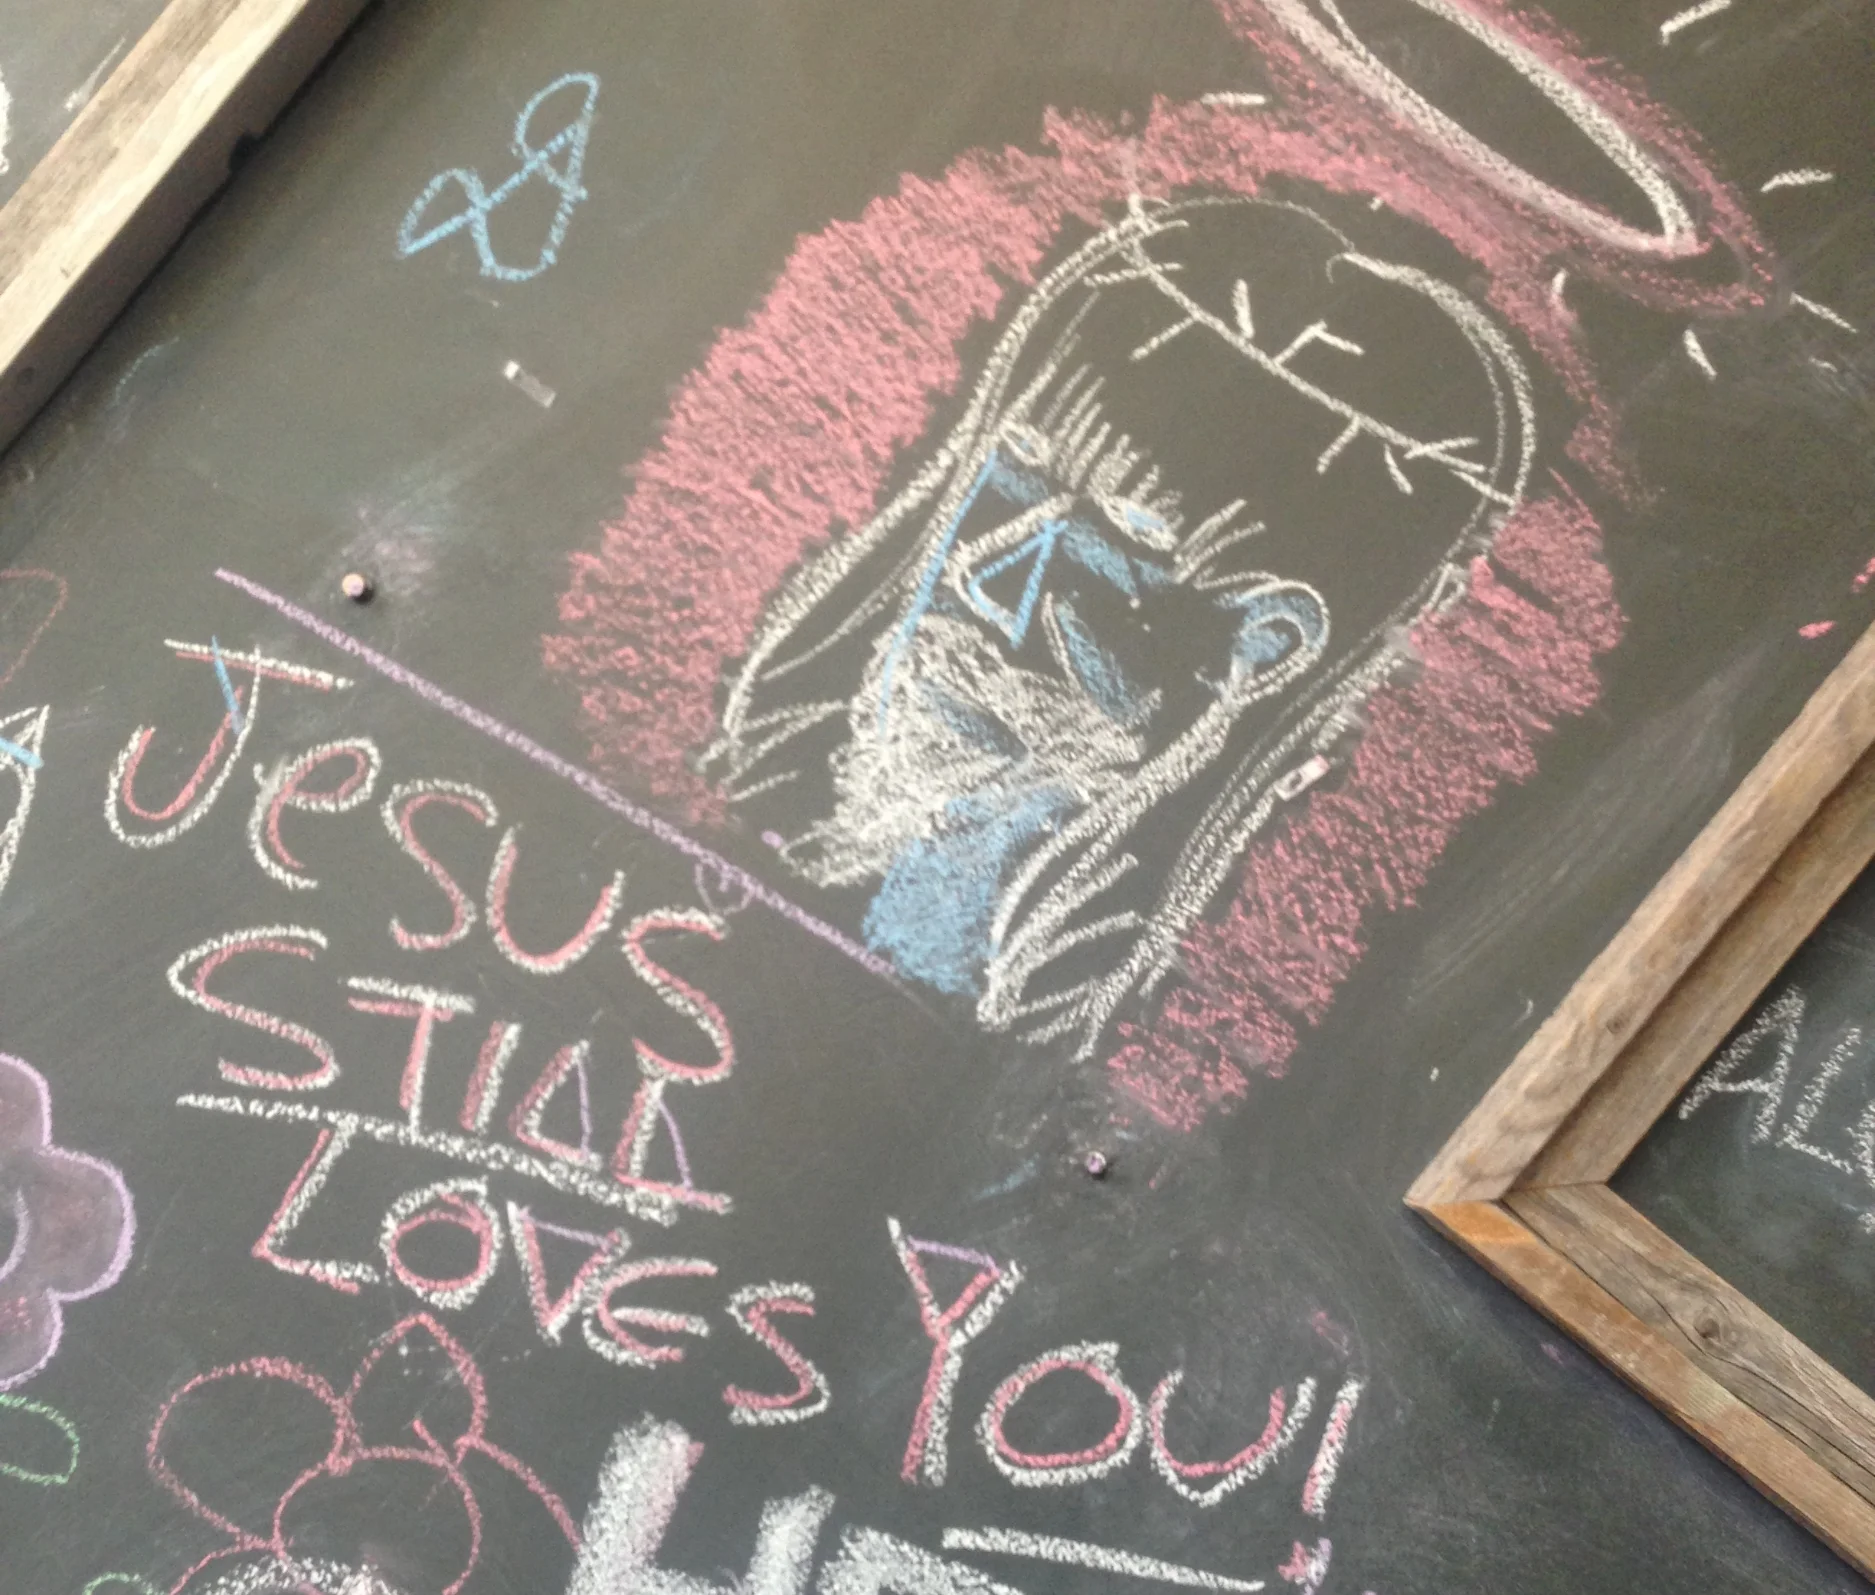 Jesus
STILL
LOVES YOU!